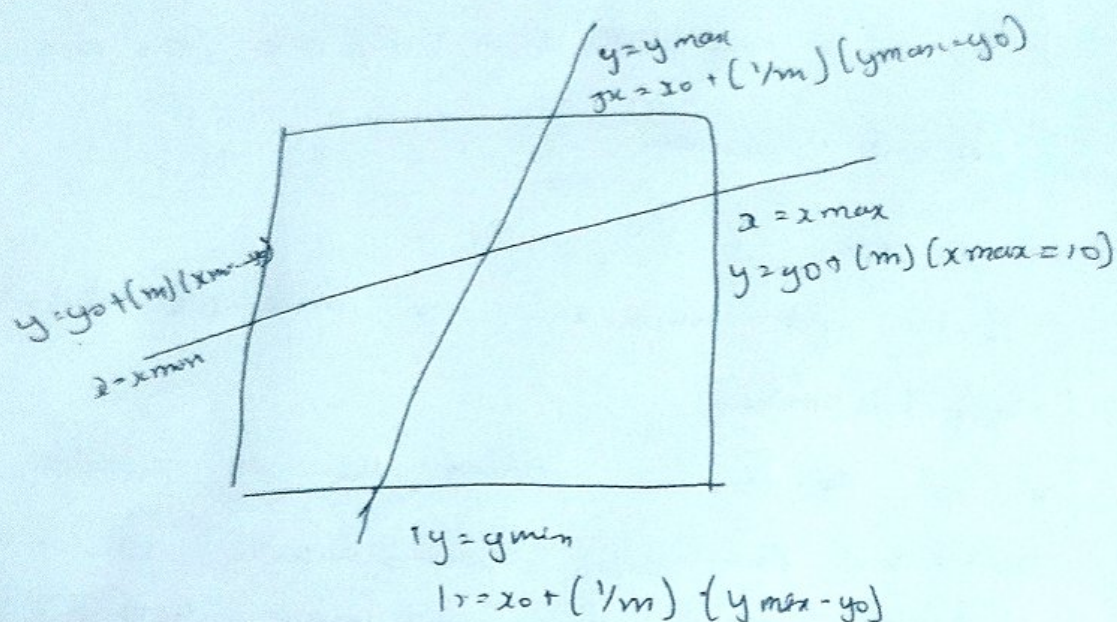 y = y max
x = x0 + (1/m) (ymax - y0)
x = x max
y = y0 + (m) (xmax = 10)
y = y0 + (m)
x = xmin
y = ymin
= x0 + (1/m) (y max - y0)